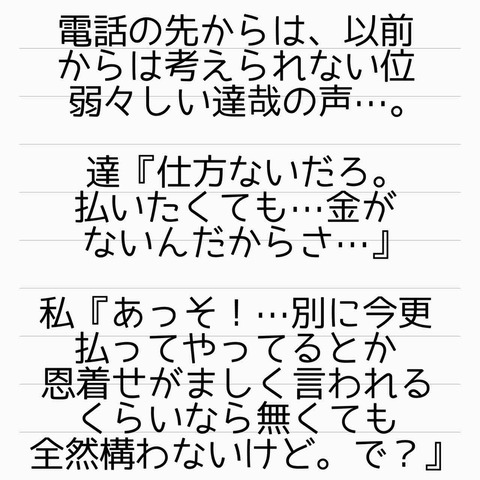 電話の先からは、以前
からは考えられない位
弱々しい達哉の声…。
達『仕方ないだろ。
払いたくても…金が
ないんだからさ…』
私『あっそ！…別に今更
払ってやってるとか
恩着せがましく言われる
くらいなら無くても
全然構わないけど。で？』